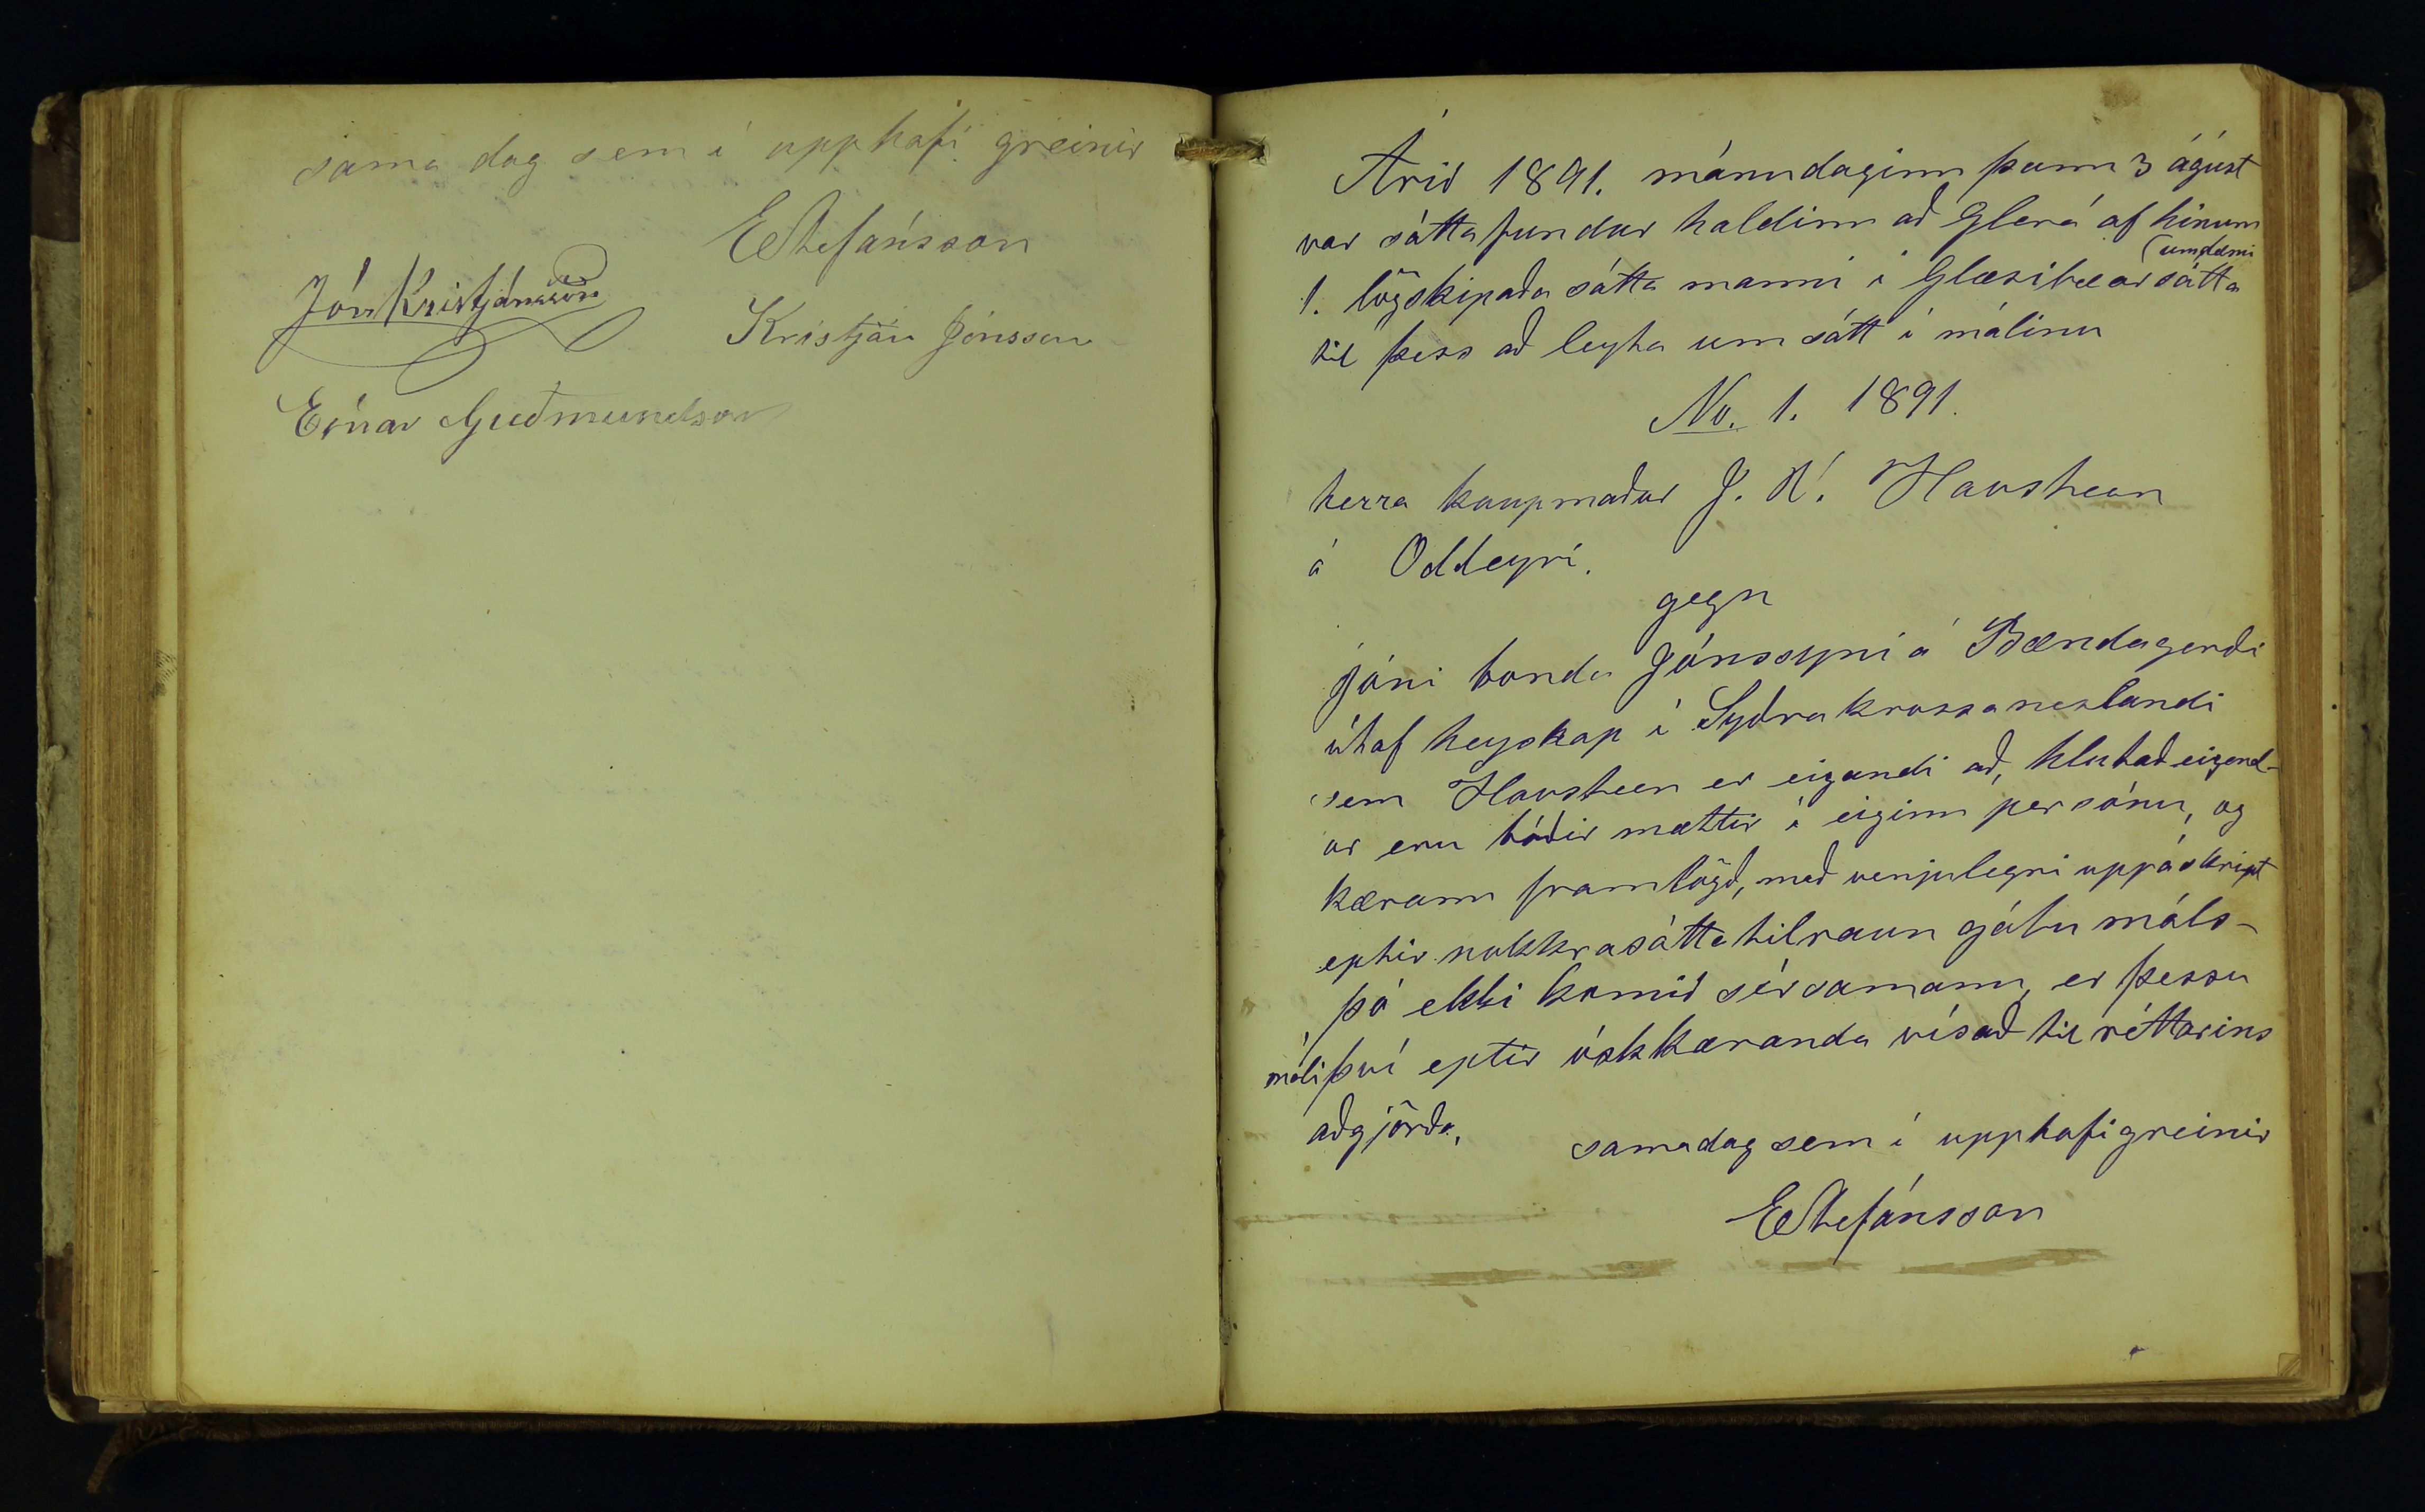 sama dag sem í upphafi greinir
EStefánsson
Jón Kristjánsson
Kristján Jónsson
Einar Guðmundsson
Árið 1891. mánudaginn þann 3 ágúst
var sáttafundur haldinn að Glerá af hinum
(umdæmi
1. lögskipaða sátta manni í Glæsibæar sátta
til þess að leyta um sátt í málinu
No. 1. 1891.
herra kaupmaður J. V. Havsteen
á Oddeyri.
gegn
Jóni bonda Jónssyni á Bændagerði
útaf heyskap í Syðrakrossaneslandi
sem Havsteen er eigandi að, hlutaðeigend-
ar eru báðir mættir í eiginn persónu, og
kærann framlögð, með venjulegri uppáskript
eptir nokkra sáttatilraun gátu máls-
þó ekki komið sér samann, er þessu
máli því eptir ósk kæranda vísað til réttarins
aðgjörða,
samadag sem í upphafi greinir
EStefánsson